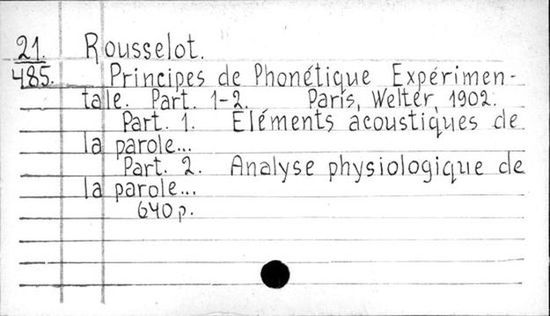 21. Rousselot.
485. Principes de Phonétique Expérimen-
tale. Part. 1-2. Paris, Welter, 1902.
Part. 1. Eléments acoustiques de
la parole...
Part. 2. Analyse physiologique de
la parole...
640 p.